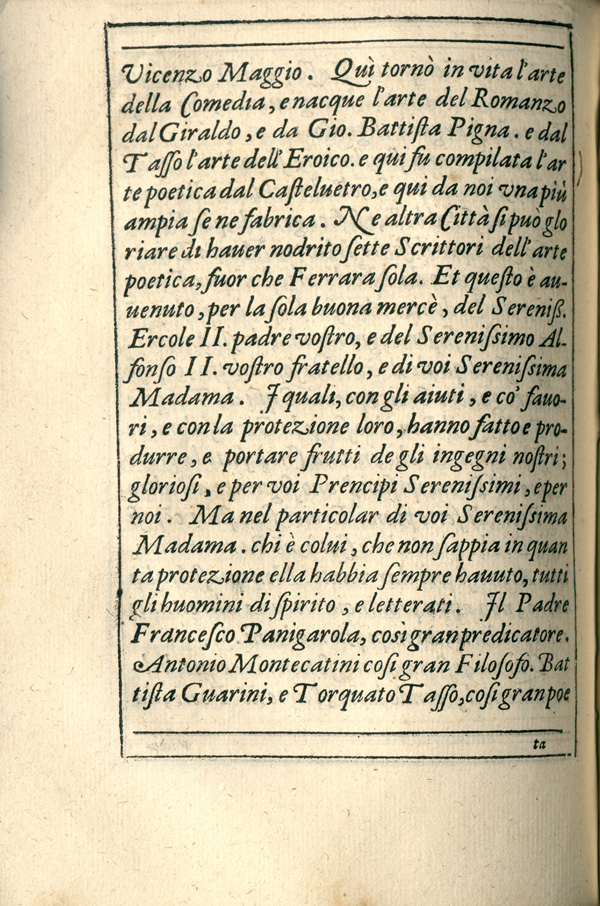 Vicenzo Maggio. Quì tornò in vita l'arte
della Comedia, e nacque l'arte del Romanzo
dal Giraldo, e da Gio. Battiſta Pigna. e dal
Taſſo l'arte dell'Eroico. e qui fu compilata l'ar
te poetica dal Caſteluetro, e qui da noi vna più
ampia ſe ne fabrica. Ne altra Città ſi può glo
riare di hauer nodrito ſette Scrittori dell'arte
poetica, fuor che Ferrara ſola. Et queſto è au-
uenuto, per la ſola buona mercè, del Sereniß.
Ercole II. padre voſtro, e del Sereniſſimo Al-
fonſo II. voſtro fratello, e di voi Sereniſſima
Madama. I quali, con gli aiuti, e co' fauo-
ri, e con la protezione loro, hanno fatto e pro-
durre, e portare frutti de gli ingegni noſtri;
glorioſi, e per voi Prencipi Sereniſſimi, e per
noi. Ma nel particolar di voi Sereniſſima
Madama. chi è colui, che non ſappia in quan
ta protezione ella habbia ſempre hauuto, tutti
gli huomini di ſpirito, e letterati. Il Padre
Franceſco Panigarola, così gran predicatore.
Antonio Montecatini coſi gran Filoſofo. Bat
tiſta Guarini, e Torquato Taſſo, coſi gran poe
ta